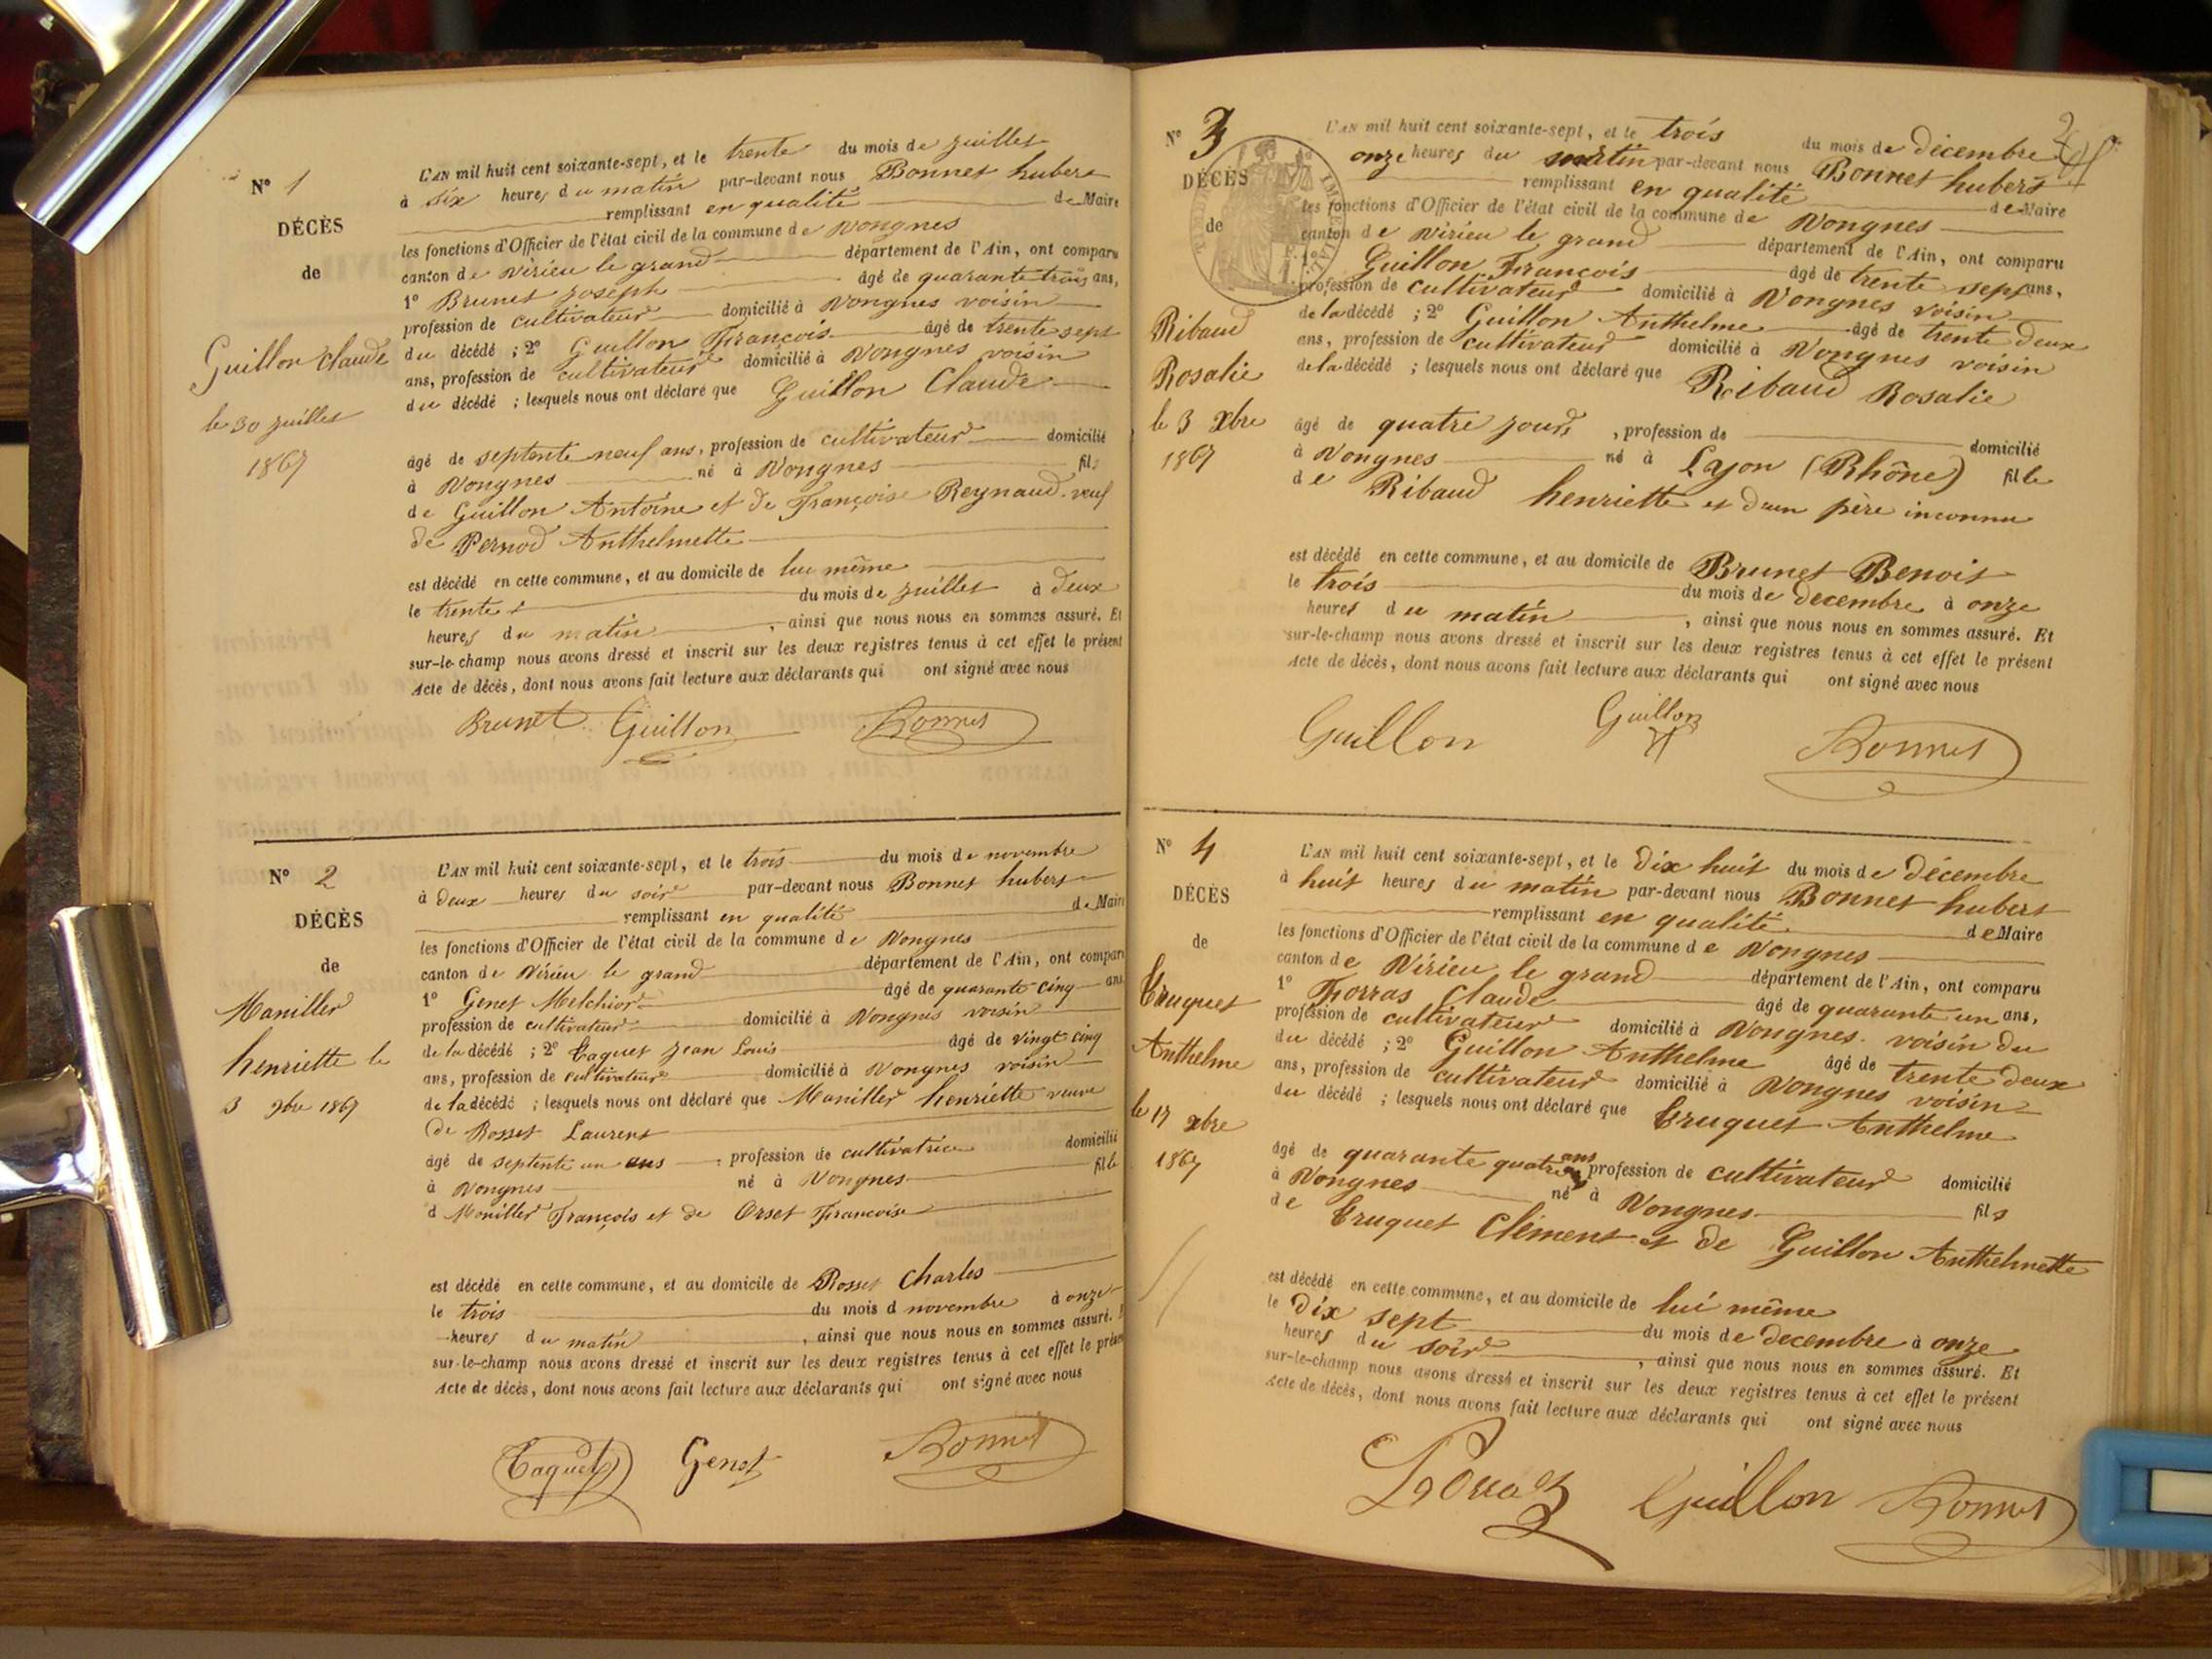 N° 1
DÉCÈS
de
Guillon Claude
le 30 juillet
1867
L'AN mil huit cent soixante-sept, et le trente du mois de juillet
à six heures du matin par-devant nous Bonnet hubert
remplissant en qualité de Maire
les fonctions d'Officier de l'état civil de la commune de Vongnes
canton de Virieu le grand département de l'Ain, ont comparu
1° Brunet Joseph âgé de quarante trois ans,
profession de cultivateur domicilié à Vongnes voisin
du décédé ; 2° Guillon François âgé de trente sept
ans, profession de cultivateur domicilié à Vongnes voisin
du décédé ; lesquels nous ont déclaré que Guillon Claude
âgé de septente neuf ans, profession de cultivateur domicilié
à Vongnes né à Vongnes fils
de Guillon Antoine et de Françoise Reynaud. veuf
de Pernod Anthelmette
est décédé en cette commune, et au domicile de lui même
le trente du mois de juillet à deux
heures du matin, ainsi que nous nous en sommes assuré. Et
sur-le-champ nous avons dressé et inscrit sur les deux registres tenus à cet effet le présent
Acte de décès, dont nous avons fait lecture aux déclarants qui ont signé avec nous
Brunet Guillon Bonnet
N° 2
DÉCÈS
de
Maniller
henriette le
3 9bre 1867
L'AN mil huit cent soixante-sept, et le trois du mois de novembre
à deux heures du soir par-devant nous Bonnet hubert
remplissant en qualité de Maire
les fonctions d'Officier de l'état civil de la commune de Vongnes
canton de Virieu le grand département de l'Ain, ont comparu
1° Genet Melchior âgé de quarante cinq ans
profession de cultivateur domicilié à Vongnes voisin
de la décédé ; 2° Taquet Jean Louis âgé de vingt cinq
ans, profession de cultivateur domicilié à Vongnes voisin
de la décédé ; lesquels nous ont déclaré que Maniller henriette veuve
de Rosset Laurent
âgé de septente un ans, profession de cultivatrice domicilié
à Vongnes né à Vongnes fille
d Maniller François et de Orset Françoise
est décédé en cette commune, et au domicile de Rosset Charles
le trois du mois d novembre à onze
heures du matin, ainsi que nous nous en sommes assuré.
sur-le-champ nous avons dressé et inscrit sur les deux registres tenus à cet effet le présen
Acte de décès, dont nous avons fait lecture aux déclarants qui ont signé avec nous
Taquet Genet Bonnet
2
N° 3
DÉCÈS
de
Ribaud
Rosalie
le 3 Xbre
1867
L'AN mil huit cent soixante-sept, et le trois du mois de décembre
onze heures du matin par-devant nous Bonnet hubert
remplissant en qualité de Maire
les fonctions d'Officier de l'état civil de la commune de Vongnes
canton de Virieu le grand département de l'Ain, ont comparu
1° Guillon François âgé de trente sept ans,
profession de cultivateur domicilié à Vongnes voisin
de la décédé ; 2° Guillon Anthelme âgé de trente deux
ans, profession de cultivateur domicilié à Vongnes voisin
de la décédé ; lesquels nous ont déclaré que Ribaud Rosalie
âgé de quatre jours, profession de domicilié
à Vongnes né à Lyon (Rhône) fille
de Ribaud henriette et d'un père inconnu
est décédé en cette commune, et au domicile de Brunet Benoit
le trois du mois de decembre à onze
heures du matin, ainsi que nous nous en sommes assuré. Et
sur-le-champ nous avons dressé et inscrit sur les deux registres tenus à cet effet le présent
Acte de décès, dont nous avons fait lecture aux déclarants qui ont signé avec nous
Guillon Guillon Bonnet
N° 4
DÉCÈS
de
Truquet
Anthelme
le 17 xbre
1867
L'AN mil huit cent soixante-sept, et le dix huit du mois de décembre
à huit heures du matin par-devant nous Bonnet hubert
remplissant en qualité de Maire
les fonctions d'Officier de l'état civil de la commune de Vongnes
canton de Virieu le grand département de l'Ain, ont comparu
1° Thorras Claude âgé de quarante un ans,
profession de cultivateur domicilié à Vongnes. voisin du
du décédé ; 2° Guillon Anthelme âgé de trente deux
ans, profession de cultivateur domicilié à Vongnes voisin
du décédé ; lesquels nous ont déclaré que Truquet Anthelme
âgé de quarante quatre ans profession de cultivateur domicilié
à Vongnes né à Vongnes fils
de Truquet Clément et de Guillon Anthelmette
est décédé en cette commune, et au domicile de lui même
le dix sept du mois de decembre à onze
heures du soir, ainsi que nous nous en sommes assuré. Et
sur-le-champ nous avons dressé et inscrit sur les deux registres tenus à cet effet le présent
Acte de décès, dont nous avons fait lecture aux déclarants qui ont signé avec nous
Guillon Bonnet